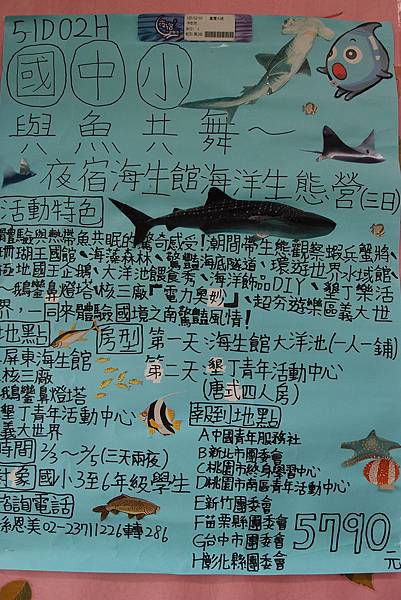 51D02H
國中小
與魚共舞～
夜宿海生館海洋生態營(三日)
活動特色
體驗與熱帶魚共眠的驚奇感受!朝間帶生態觀察蝦兵蟹將、
珊瑚王國館、海藻森林、驚豔海底隧道、環遊世界水域館、
極地國王企鵝、大洋池餵食秀、海洋飾品DIY、墾丁樂活
～鵝鑾鼻燈塔、核三廠『電力奧妙』、超夯遊樂區義大世
界，一同來體驗國境之南驚豔風情!
地點
屏東海生館
核三廠
鵝鑾鼻燈塔
墾丁青年活動中心
義大世界
房型
第一天 海生館大洋池(一人一鋪)
第二天 墾丁青年活動中心
(唐式四人房)
時間 2/3～2/5(三天兩夜)
對象 國小3至6年級學生
諮詢電話
孫恩美02-23711226轉286
報到地點
A中國青年服務社
B新北市團委會
C桃園市終身學習中心
D桃園市南區青年活動中心
E新竹團委會
F苗栗縣團委會
G台中市團委會
H彰化縣團委會
5790元